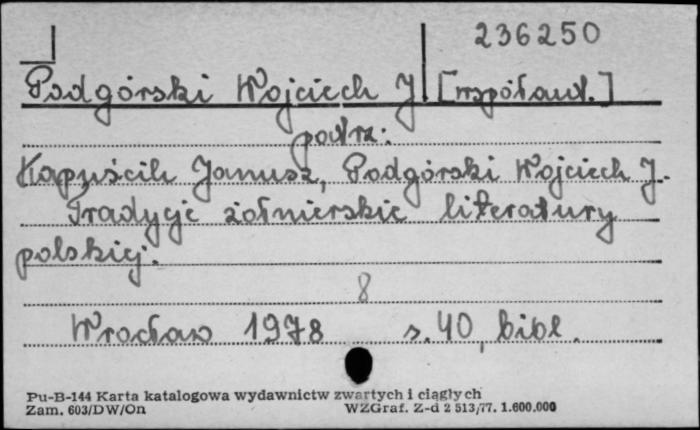 236250
Podgórski Wojciech J [współaut.]
patrz:
Kapuścik Janusz, Podgórski Wojciech J.
Tradycje żołnierskie literatury
polskiej.
8
Wrocław 1978 s. 40, bibl.
Pu-B-144 Karta katalogowa wydawnictw zwartych i ciągłych
Zam. 603/DW/On WZGraf. Z-d 2 513/77. 1.600.000